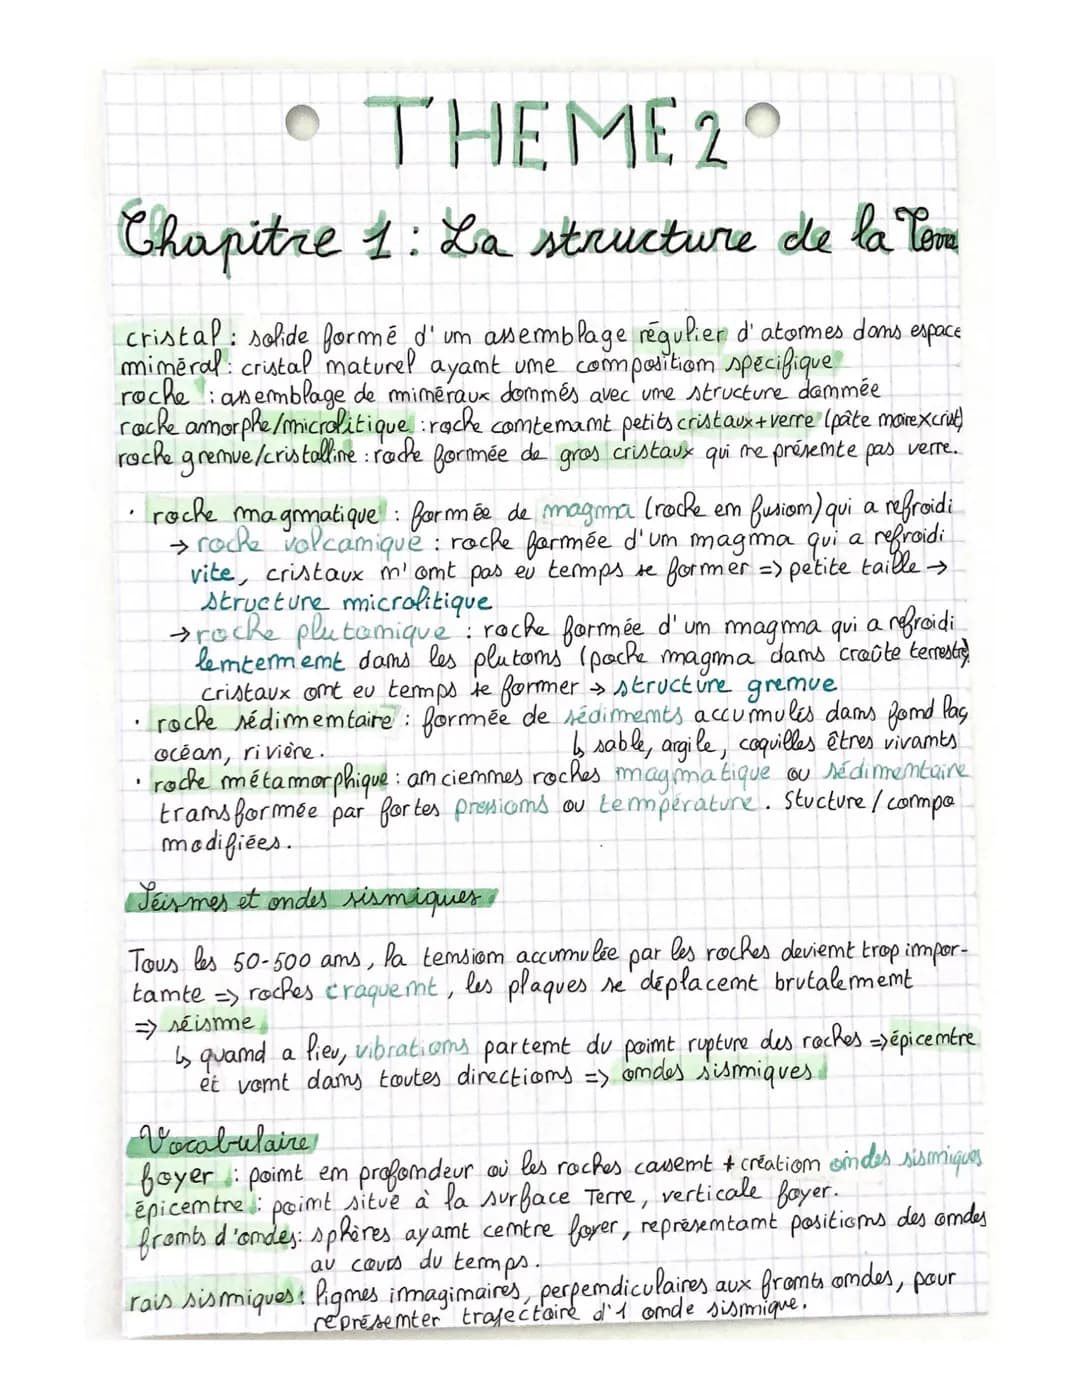 THEME 2
Chapitre 1 : La structure de la Terre
cristal : solide formé d'un assemblage régulier d'atomes dans espace
minéral : cristal naturel ayant une composition spécifique
roche : assemblage de minéraux donnés avec une structure donnée
roche amorphe/microlitique : roche contenant petits cristaux + verre (pâte noire x crist)
roche grenue/cristalline : roche formée de gros cristaux qui ne présente pas verre.
• roche magmatique : formée de magma (roche en fusion) qui a refroidi
→ roche volcanique : roche formée d'un magma qui a refroidi
vite, cristaux n'ont pas eu temps se former => petite taille →
structure microlitique
→ roche plutonique : roche formée d'un magma qui a refroidi
lentement dans les plutons (poche magma dans croûte terrestre)
cristaux ont eu temps se former → structure grenue
• roche sédimentaire : formée de sédiments accumulés dans fond lac,
océan, rivière. ↳ sable, argile, coquilles êtres vivants
• roche métamorphique : anciennes roches magmatique ou sédimentaire
transformée par fortes pressions ou température. Stucture / compo
modifiées.
Séismes et ondes sismiques
Tous les 50-500 ans, la tension accumulée par les roches devient trop impor-
tante => roches craquent, les plaques se déplacent brutalement
=> séisme
↳ quand a lieu, vibrations partent du point rupture des roches => épicentre
et vont dans toutes directions => ondes sismiques
Vocabulaire
foyer : point en profondeur où les roches cassent + création ondes sismiques
épicentre : point situé à la surface Terre, verticale foyer.
fronts d'ondes : sphères ayant centre foyer, représentant positions des ondes
au cours du temps.
rais sismiques : lignes imaginaires, perpendiculaires aux fronts ondes, pour
représenter trajectoire d'1 onde sismique.